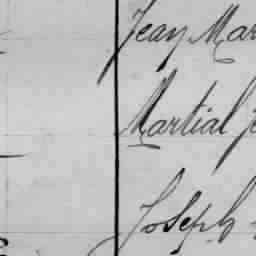 Jean Mar
Martial J
Joseph